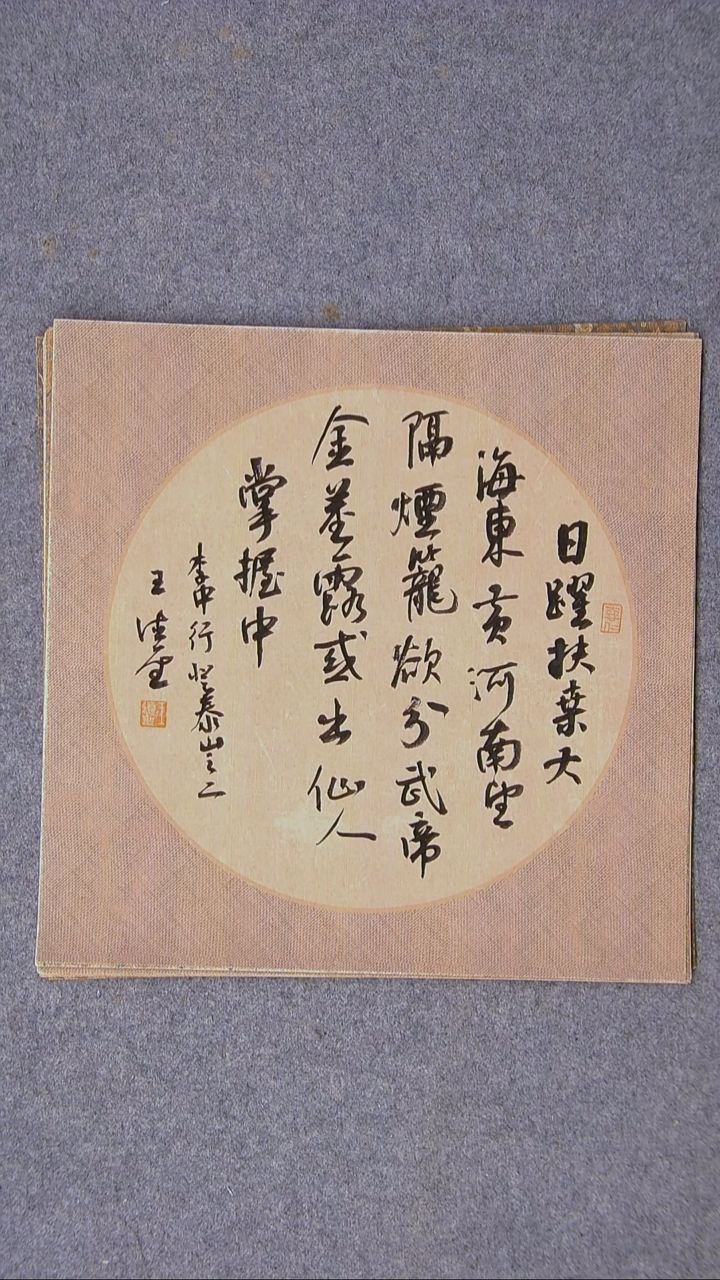 日躍扶桒大
海東黃河南望
隔煙籠欲分武帝
金莖露或出仙人
掌握中
李中行登泰山之二
王